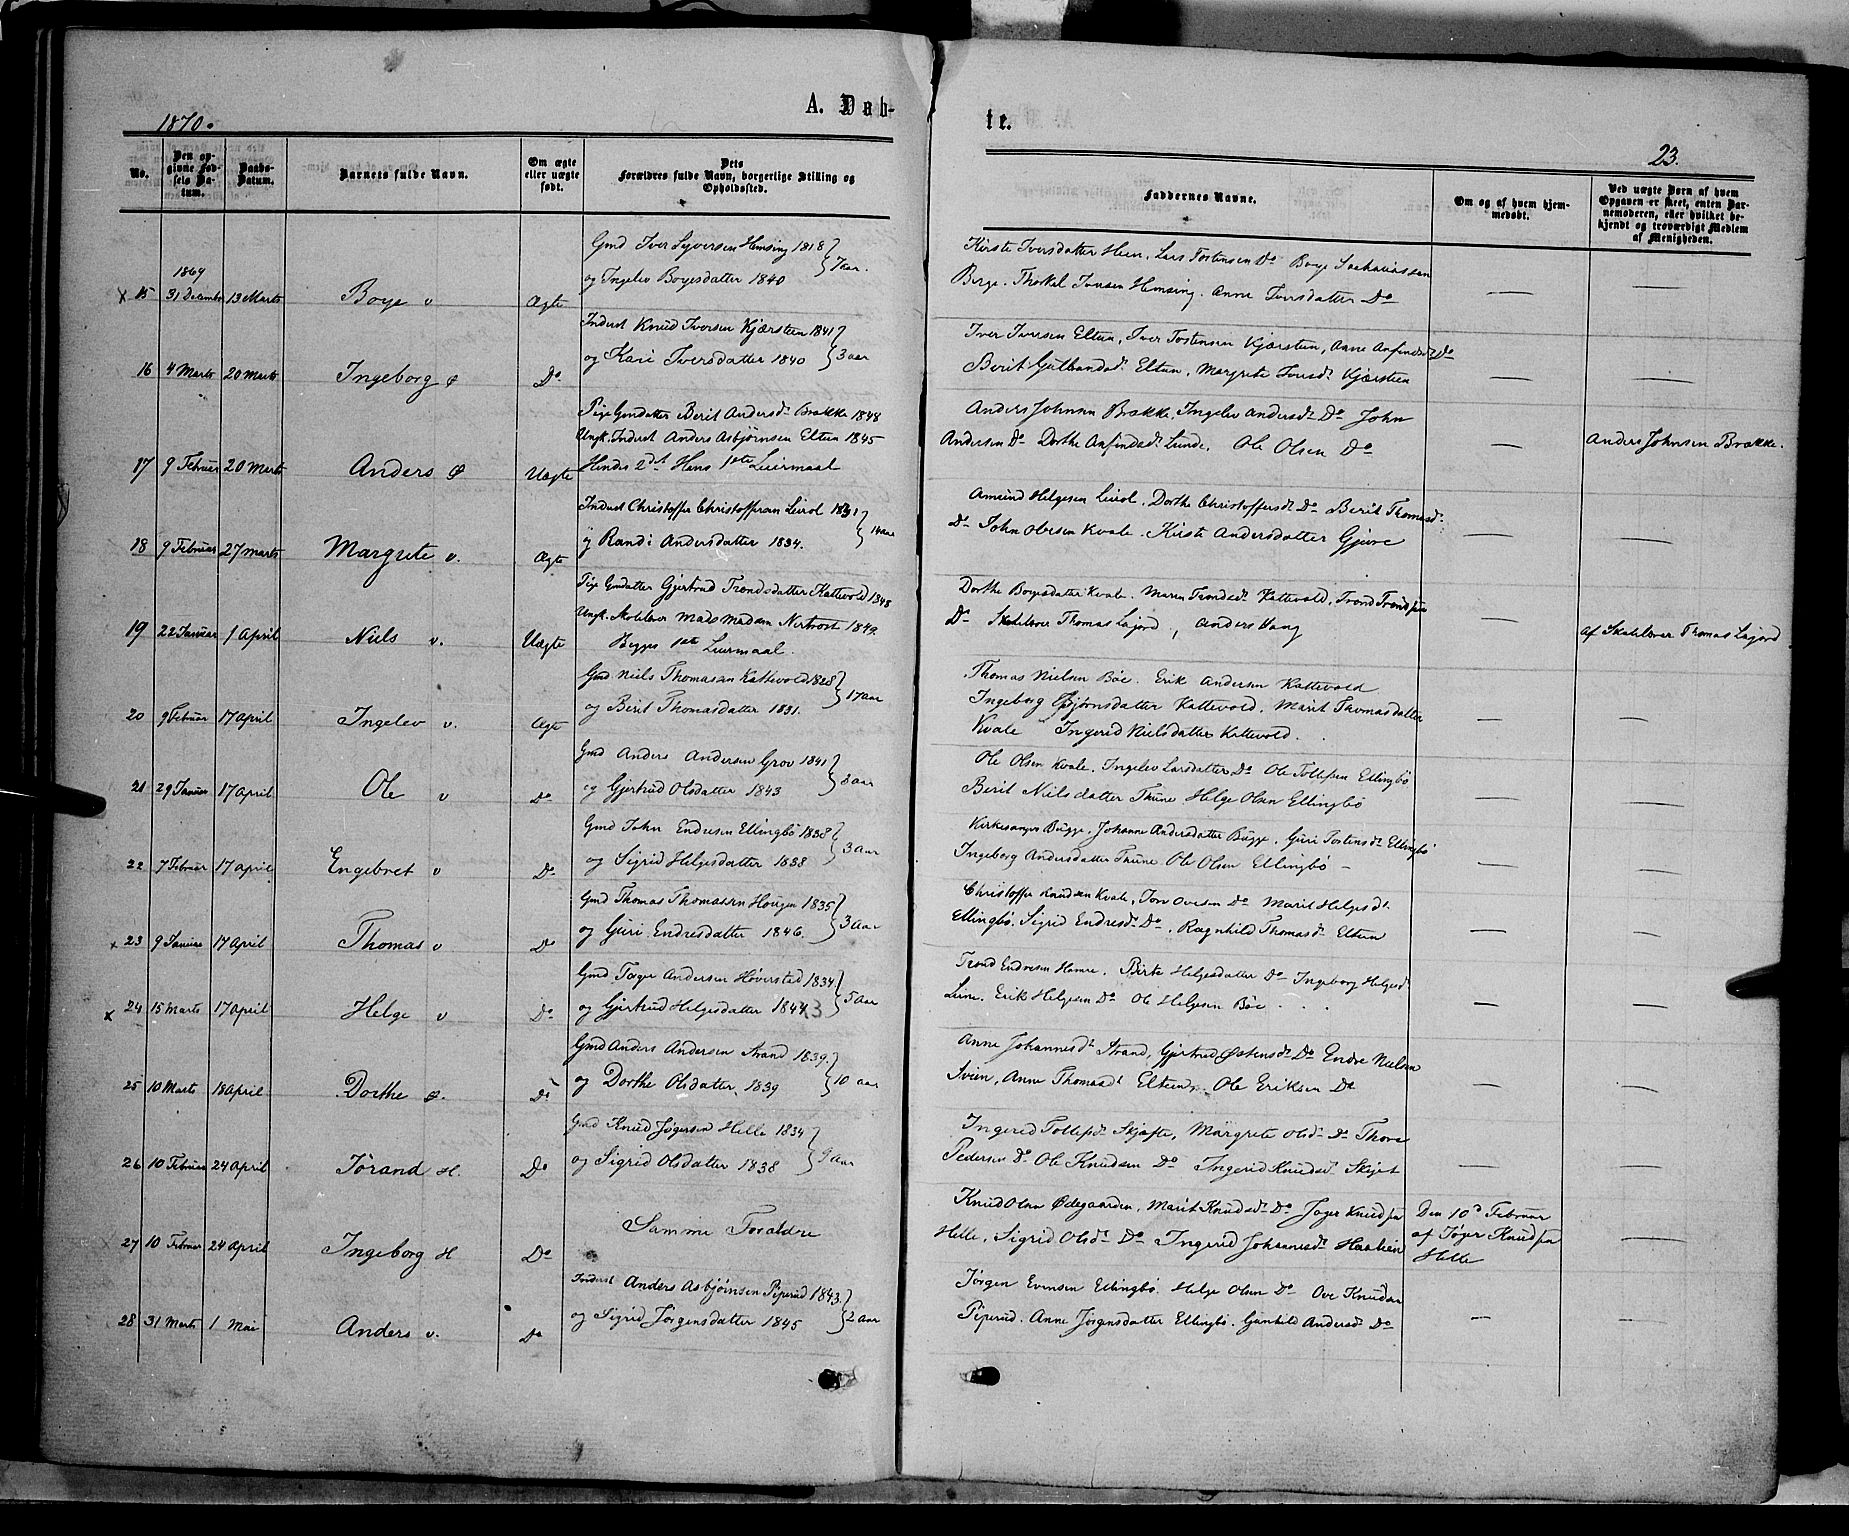 1870.
A. Døb-
te.
23.
No.
Den opgivne Fødsels Datum.
Daabs-Datum.
Barnets fulde Navn.
Om ægte eller uægte født.
Dets Forældres fulde Navn, borgerlige Stilling og Opholdssted.
Faddernes Navne.
Om og af hvem hjemmedøbt.
Ved uægte Børn af hvem Opgaven er skeet, enten Barnemoderen, eller hvilket bekjendt og troværdigt Medlem af Menigheden.
Gmd Iver Syversen Hemsing 1818
og Ingelev Boyesdatter 1840 } 7 aar.
x 15 1869 31 December 13 Marts Boye v Ægte
Kirste Iversdatter Heen, Lars Tostensen Do Boye Sachariassen
Berge. Thorkel Hemsing. Anne Iversdatter Do — —
Inderst Knud Iversen Kjærstein 1841
og Kari Iversdatter 1840 } 3 aar
16 4 Marts 20 Marts Ingeborg ø Do
Iver Iversen Eltun, Iver Tostensen Kjærstein, Anne Anfindsdt Do
Berit Gulbrandsdt Eltun, Margrete Kjærstein — —
Pige Gmdatter Berit Andersdt Brække 1848
Ungk. Inderst Anders Asbjørnsen Eltun 1845
Hendes 2det Hans 1ste Leiermaal
17 9 Februar 20 Marts Anders ø Uægte
Anders Johnsen Brække, Ingelev Andersdt Do John
Andersen Do Dorthe Anfindsdt Lunde, Ole Olsen Do — Anders Johnsen Brække.
Inderst Christoffer Christoffersen Leirol 1831
og Randi Andersdatter 1834. } 14 aar
18 9 Februar 27 Marts Margrete v. Ægte
Amund Helgesen Leirol. Dorthe Christoffersdt Do Berit Thomasdt
Do John Olsen Kvale. Kirste Andersdatter Gjeire — —
Pige Gmdatter Gjertrud Trondsdatter Kattevold 1848
Ungk. Skolelærer Mads Madsen Nertrost 1849.
Begges 1ste Leiermaal.
19 22 Januar 1 April Niels v. Uægte
Dorthe Boyesdatter Kvale. Maren Trondsdt Kattevold, Trond Trondsen
Do Skolelærer Thomas Lajord, Anders Vang — af Skolelærer Thomas Lajord
Gmd. Niels Thomasen Kattevold 1828
og Berit Thomasdatter 1831. } 17 aar
20 9 Februar 17 April Ingelev v. Ægte
Thomas Nielsen Bøe. Erik Andersen Kattevold
Ingeborg Bjørnsdatter Kattevold, Marit Thomasdatter
Kvale Ingerid Nielsdatter Kattevold. — —
Gmd Anders Andersen Grov 1841
og Gjertrud Olsdatter 1843 } 3 aar
21 29 Januar 17 April Ole v Do
Ole Olsen Kvale. Ingelev Larsdatter Do Ole Tollefsen Ellingbø
Berit Nielsdatter Thune Helge Olsen Ellingbø — —
Gmd John Endresen Ellingbø 1838
og Sigrid Helgesdatter 1838 } 3 aar
22 7 Februar 17 April Engebret v Do
Kirkesanger Bugge. Johanne Andersdatter Bugge, Guri Tostensdt Ellingbø
Ingeborg Andersdatter Thune Ole Olsen Ellingbø — — —
Gmd Thomas Thomassen Hougen 1835
og Guri Endresdatter 1846. } 3 aar
x 23 9 Januar 17 April Thomas v Do
Christoffer Knudsen Kvale, Tore Ovesen Do Marit Helgesdt
Ellingbø. Sigrid Endresdt Do, Ragnhild Thomasdt Eltun — —
Gmd Tager Andersen Høverstad 1834
og Gjertrud Helgesdatter 1844 3 } 5 aar
x 24 15 Marts 17 April Helge v Do
Trond Endresen Hamre. Birte Helgesdatter Do Ingeborg Helgesdt
Lune. Erik Helgesen Do Ole Helgesen Bøe — —
Gmd Anders Andersen Strand 1839.
og Dorthe Olsdatter 1839 } 10 aar
25 10 Marts 18 April Dorthe ø. Do
Anne Johannesdt Strand, Gjertrud Østensdt Do Endre Nielsen
Svien, Anne Thomasdt Eltun, Ole Eriksen Do — —
Gmd Knud Jøgersen Helle 1834
og Sigrid Olsdatter 1838 } 9 aar
26 10 Februar 24 April Jørand H. Do
Ingerid Tollefsdt Skjefte, Margrete Olsdt Do Thore
Pedersen Do Ole Knudsen Do Ingerid Knudsdt Skjet — —
Samme Forældre
27 10 Februar 24 April Ingeborg H Do
Knud Olsen Ødegaarden, Marit Knudsdt Do Jøger Knudsen
Helle, Sigrid Olsdt Do Ingerid Johannesdt Haalien
Den 10de Februar af Jøger Knudsen Helle —
Inderst Anders Asbjørnsen Piperud 1843.
og Sigrid Jørgensdatter 1845 } 2 aar
28 31 Marts 1 Mai Anders v. Do
Jørgen Evensen Ellingbø. Helge Olsen Do Ove Knudsen
Piperud. Anne Jørgensdatter Ellingbø. Gunhild Andersdt Do — —